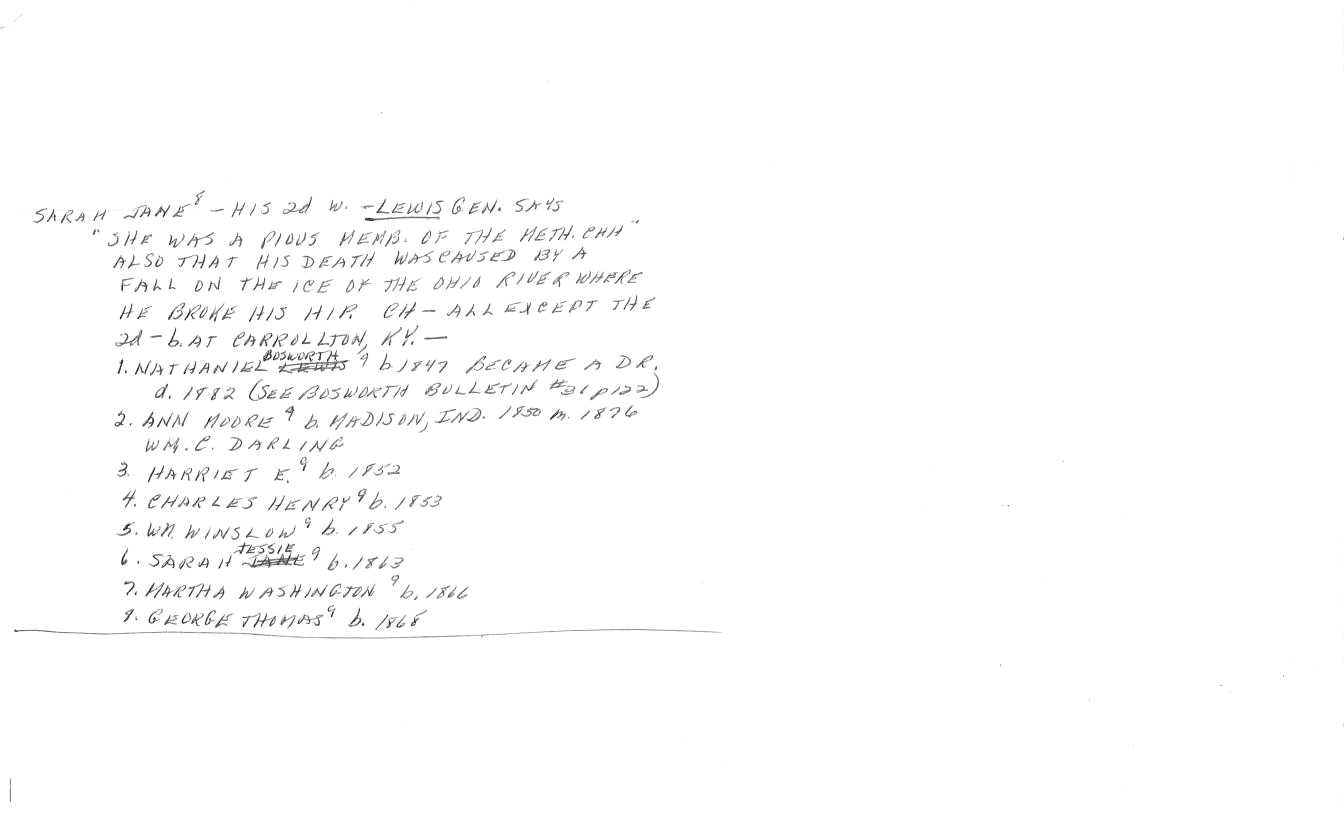 SARAH JANE⁸ – HIS 2d W. – LEWIS GEN. SAYS
"SHE WAS A PIOUS MEMB. OF THE METH. CHH"
ALSO THAT HIS DEATH WAS CAUSED BY A
FALL ON THE ICE OF THE OHIO RIVER WHERE
HE BROKE HIS HIP. CH – ALL EXCEPT THE
2d – b. AT CARROLLTON, KY. –
1. NATHANIEL BOSWORTH LEWIS ⁹ b 1847 BECAME A DR.
d. 1882 (SEE BOSWORTH BULLETIN #31 p 122)
2. ANN MOORE ⁹ b. MADISON, IND. 1850 m. 1876
WM. C. DARLING
3. HARRIET E. ⁹ b. 1852
4. CHARLES HENRY ⁹ b. 1853
5. WM. WINSLOW ⁹ b. 1855
6. SARAH JESSIE JANE ⁹ b. 1863
7. MARTHA WASHINGTON ⁹ b. 1866
8. GEORGE THOMAS ⁹ b. 1868